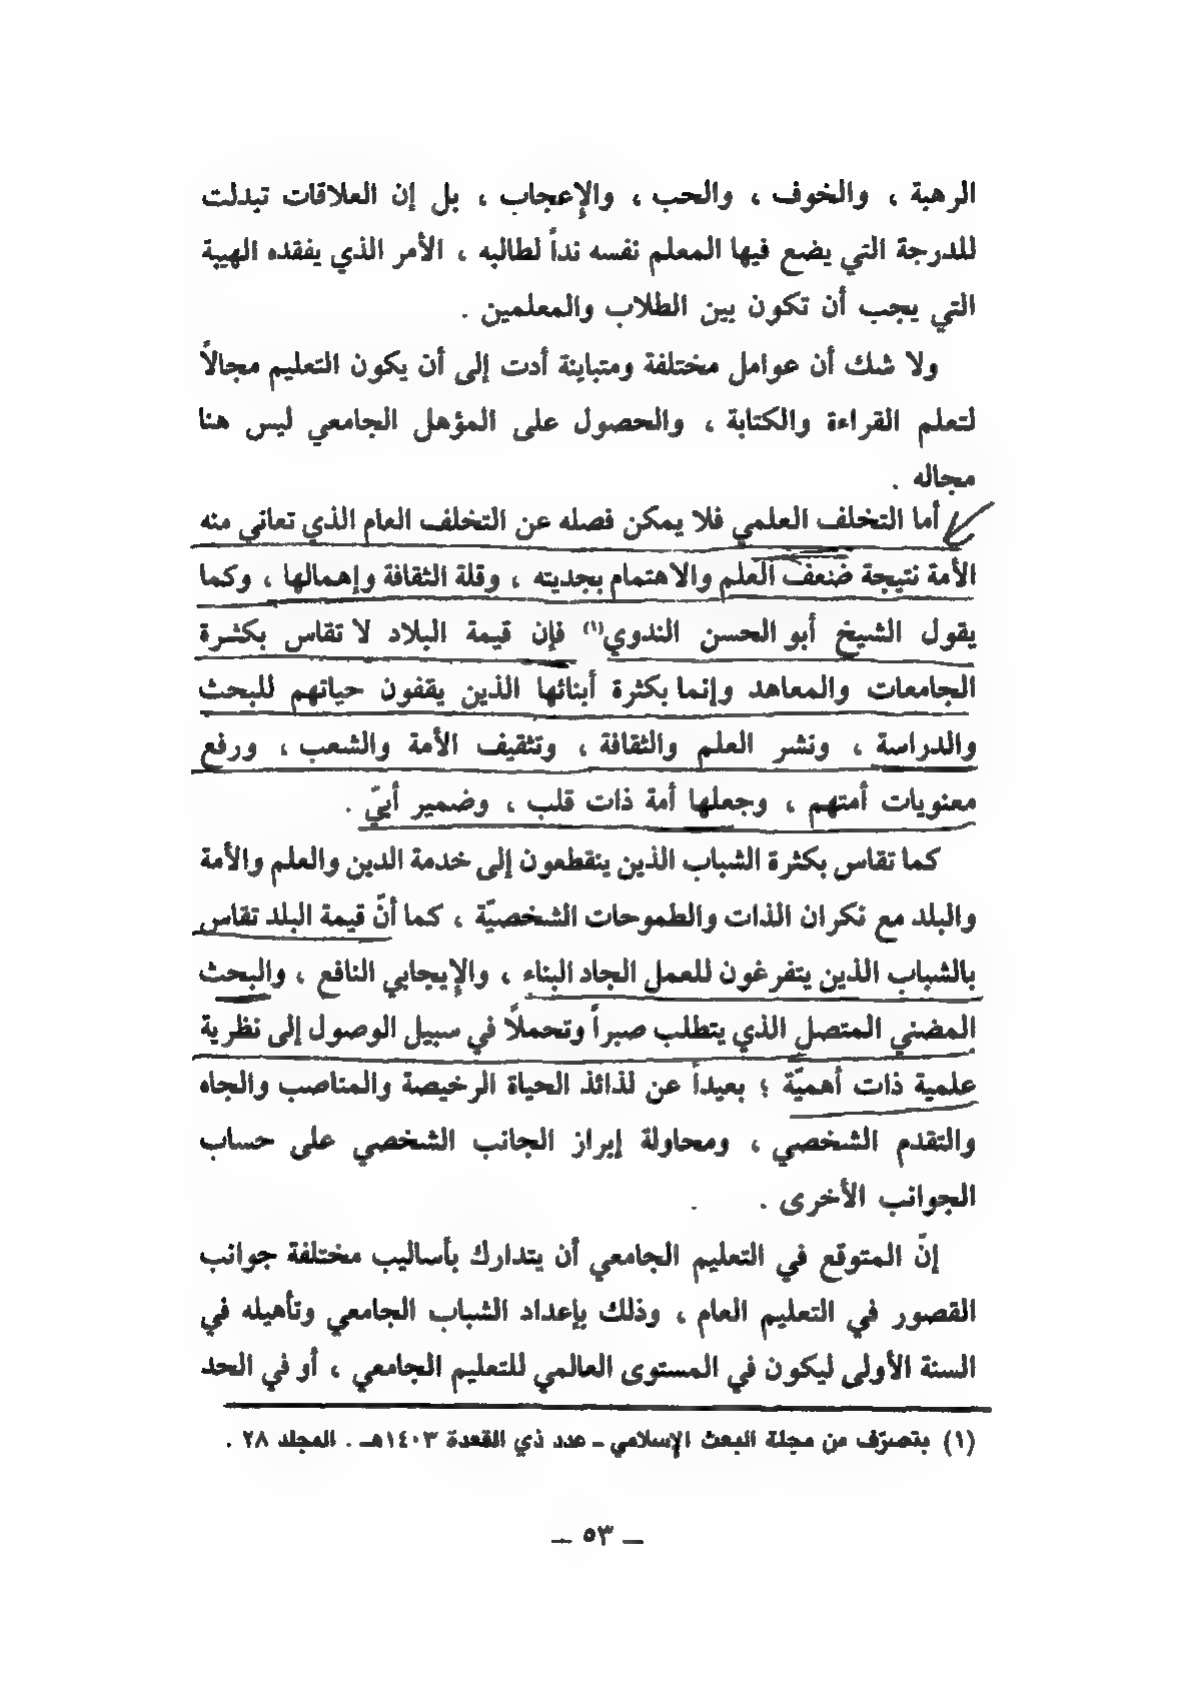 الرهبة ، والخوف ، والحب ، والإعجاب ، بل إن العلاقات تبدلت
للدرجة التي يضع فيها المعلم نفسه نداً لطالبه ، الأمر الذي يفقده الهيبة
التي يجب أن تكون بين الطلاب والمعلمين .
ولا شك أن عوامل مختلفة ومتباينة أدت إلى أن يكون التعليم مجالاً
لتعلم القراءة والكتابة ، والحصول على المؤهل الجامعي ليس هنا
مجاله .
أما التخلف العلمي فلا يمكن فصله عن التخلف العام الذي تعاني منه
الأمة نتيجة ضعف العلم والاهتمام بجديته ، وقلة الثقافة وإهمالها ، وكما
يقول الشيخ أبو الحسن الندوي(١) فإن قيمة البلاد لا تقاس بكثرة
الجامعات والمعاهد وإنما بكثرة أبنائها الذين يقفون حياتهم للبحث
والدراسة ، ونشر العلم والثقافة ، وتثقيف الأمة والشعب ، ورفع
معنويات أمتهم ، وجعلها أمة ذات قلب ، وضمير أبيّ .
كما تقاس بكثرة الشباب الذين ينقطعون إلى خدمة الدين والعلم والأمة
والبلد مع نكران الذات والطموحات الشخصيّة ، كما أنّ قيمة البلد تقاس
بالشباب الذين يتفرغون للعمل الجاد البناء ، والإيجابي النافع ، والبحث
المضني المتصل الذي يتطلب صبراً وتحملاً في سبيل الوصول إلى نظرية
علمية ذات أهميّة ؛ بعيداً عن لذائذ الحياة الرخيصة والمناصب والجاه
والتقدم الشخصي ، ومحاولة إبراز الجانب الشخصي على حساب
الجوانب الأخرى .
إنّ المتوقع في التعليم الجامعي أن يتدارك بأساليب مختلفة جوانب
القصور في التعليم العام ، وذلك بإعداد الشباب الجامعي وتأهيله في
السنة الأولى ليكون في المستوى العالمي للتعليم الجامعي ، أو في الحد
(١) بتصرّف من مجلة البعث الإسلامي ـ عدد ذي القعدة ١٤٠٣هـ . المجلد ٢٨ .
ـ ٥٣ ـ